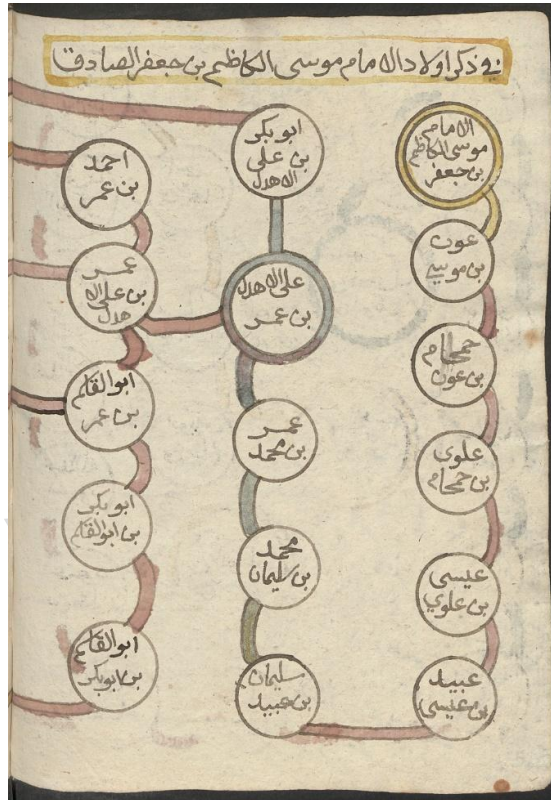 في ذكر اولاد الامام موسى الكاظم بن جعفر الصادق
الامام
موسى الكاظم
بن جعفر
عون
بن موسي
حمحام
بن عون
علوي
بن حمحام
عيسى
بن علوي
عبيد
بن عيسى
ابو بكر
بن علي
الاهدل
علي الاهدل
بن عمر
عمر
بن محمد
محمد
بن سليمان
سليمان
بن عبيد
احمد
بن عمر
عمر
بن علي الا
هدل
ابو القاسم
بن عمر
ابو بكر
بن ابو القاسم
ابو القاسم
بن ابو بكر